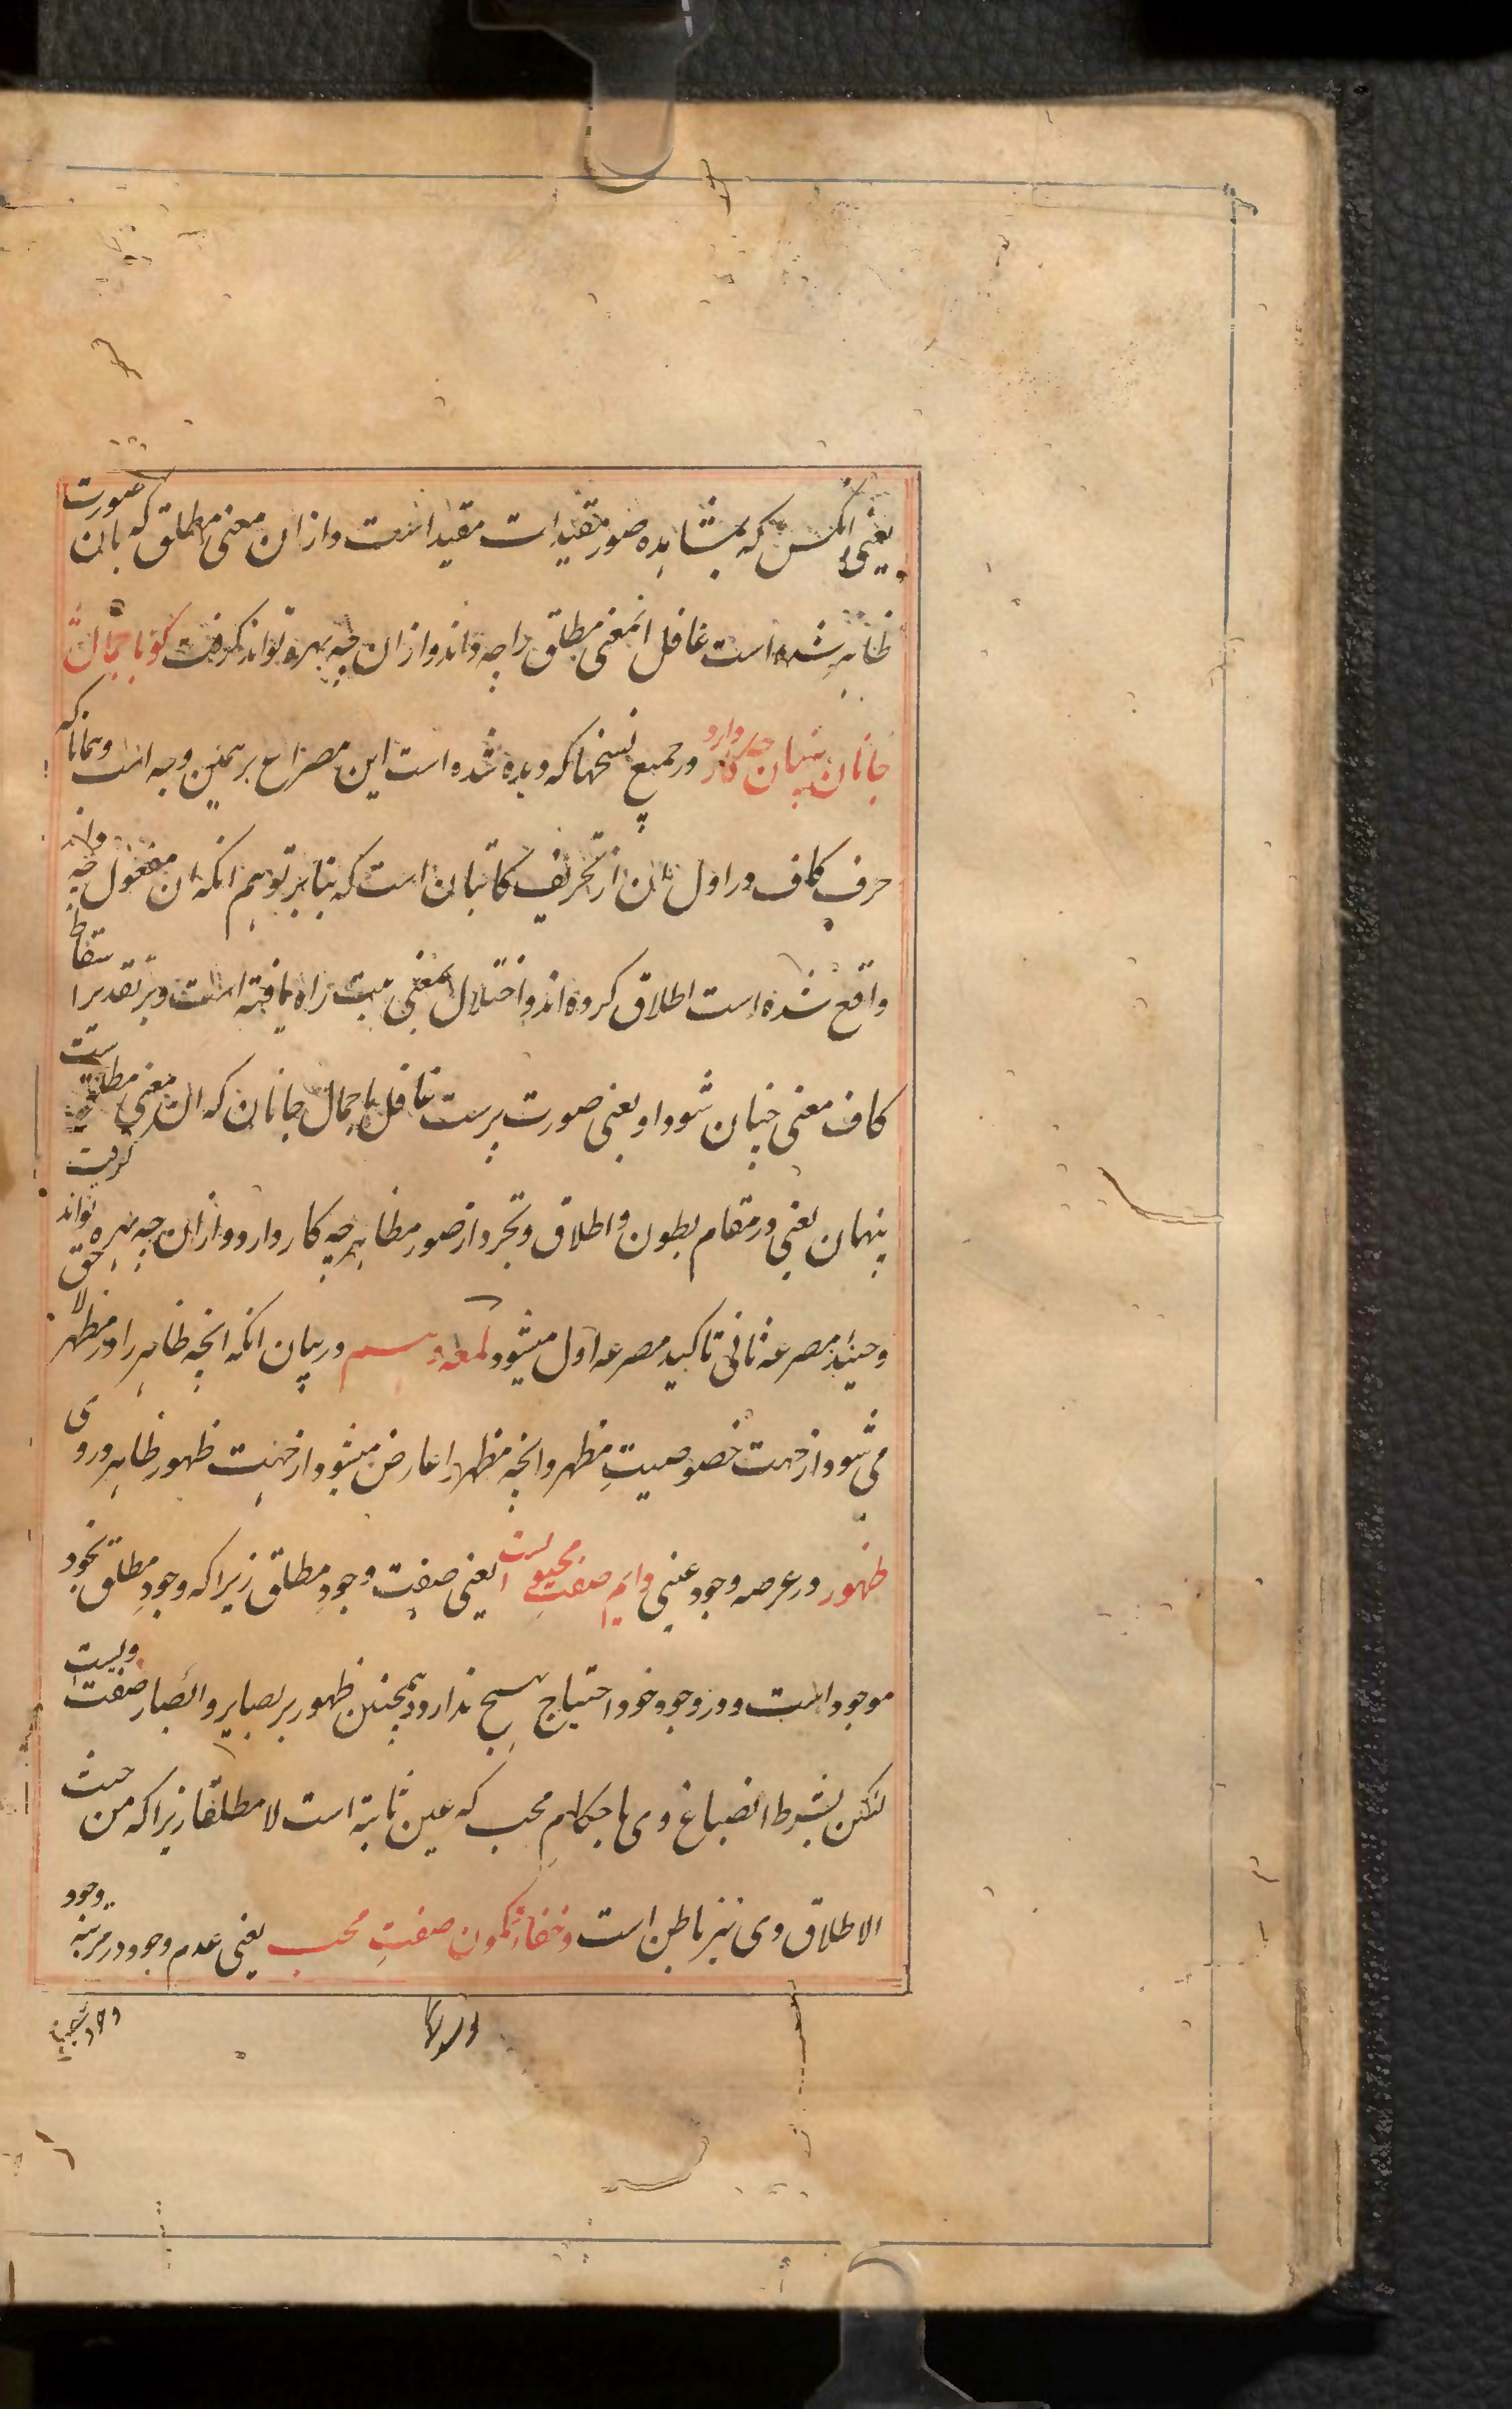 یعنی انکس که بمشاهده صور مقیدات مقید است و از ان معنی مطلق که بان صورت
ظاهر شده است غافل انمعنی مطلق را چه داند و از ان چه بهره تواند گرفت کو با جمال
جانان پنهان چه کار دارد در جمیع نسخها که دیده شده است این مصراع بر همین وجه است و همانا که
حرف کاف در اول ان از تحریف کاتبان است که بنابر توهم انکه ان مفعول چه داند
واقع شده است اطلاق کرده اند و اختلال بمعنی بیت راه یافته است و بر تقدیر اسقاط
کاف معنی چنان شود او یعنی صورت پرست غافل با جمال جانان که ان معنی مطلق است
پنهان یعنی در مقام بطون و اطلاق و تجرد از صور مظاهر چه کار دارد و از ان چه بهره تواند گرفت
و حینئذ مصرعه ثانی تاکید مصرعه اول میشود لمعه دهم در بیان انکه انچه ظاهر را در مظهر لاحق
می شود از جهت خصوصیتِ مظهر و انچه مظهر را عارض میشود از جهت ظهور ظاهر در وی
ظهور در عرصه وجود عینی دایم صفتِ محبوبی است یعنی صفت وجودِ مطلق زیرا که وجودِ مطلق بخود
موجود است و در وجود خود احتیاج بهیچ ندارد و همچنین ظهور بر بصایر و ابصار صفت ویست
لیکن بشرط انصباغ وی باحکامِ محب که عین ثابته است لا مطلقا زیرا که من حیث
الاطلاق وی نیز باطن است و خفا و کمون صفتِ محب یعنی عدم وجود در مرتبه وجود